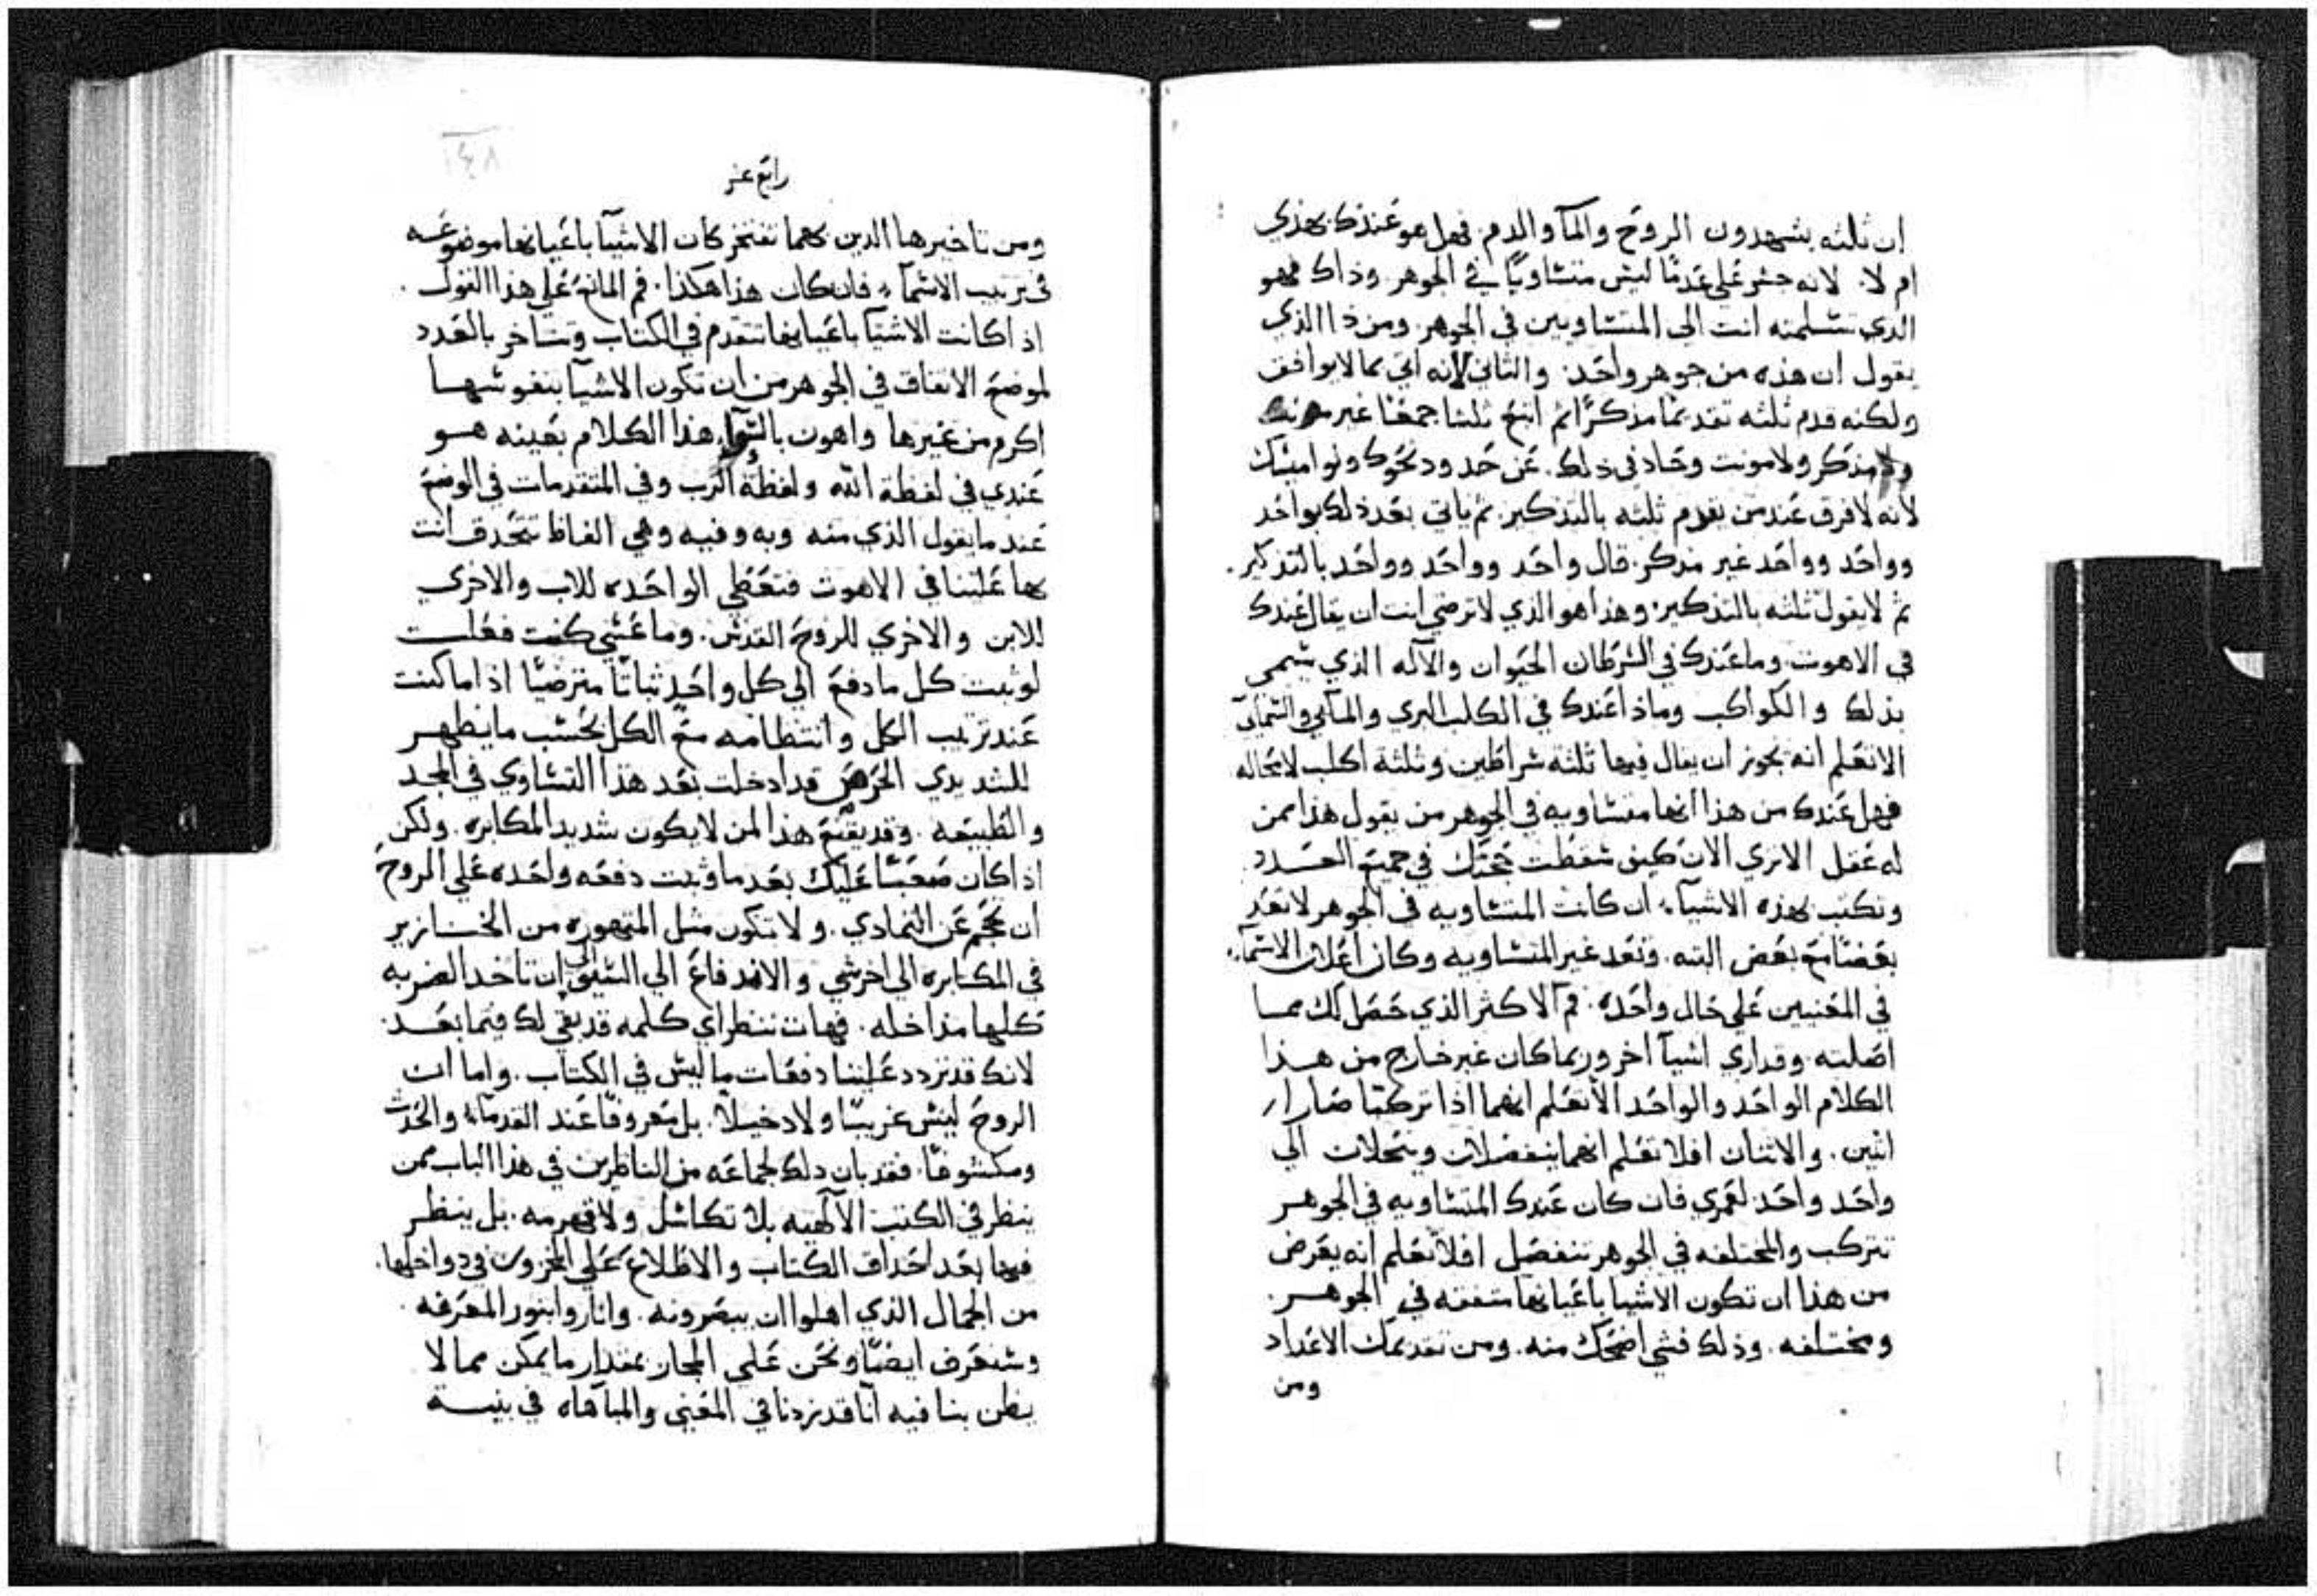 ان ثلثه يشهدون الروح والمآ والدم. فهل هو عندك بهذي
ام لا. لانه جسر علي عد ما ليس متساويًا في الجوهر. وذاك فهو
الذي تسلمنه انت الي المتساويين في الجوهر. ومن ذا الذي
يقول ان هذه من جوهر واحد. والثاني لانه اتي بما لا يوافق
ولكنه قدم ثلثه تقديمًا مذكرًا ثم اتبع ثلثا جمعًا غير مونث
ولا مذكر ولا مونت وحاد في ذلك. عن حدود نحوك ونواميسك
لانه لا فرق عند من يقدم ثلثه بالتذكير. ثم ياتي بعد ذلك بواحد
وواحد وواحد غير مذكر. قال واحد وواحد وواحد بالتذكير.
ثم لا يقول ثلثه بالتذكير. وهذا هو الذي لا ترضي انت ان يقال عندك
في الاهوت. وما عندك في السرطان الحيوان والآله الذي يسمي
بذلك والكواكب وماذا عندك في الكلب البري والمآي والسمآي
الا نعلم انه يجوز ان يقال فيها ثلثه سراطين وثلثة اكلب لا محاله
فهل عندك من هذا انها متساويه في الجوهر من يقول هذا ممن
له عقل الا تري الان كيف سقطت حجتك في جميع العدد
وتكتب بهذه الاشيآء ان كانت المتساويه في الجوهر لا تعد
بعضًا مع بعض البته. وتعد غير المتساويه وكان اعلان الاسمآء
في المعنيين علي حال واحده. فما الاكثر الذي حصل لك مما
اصلته. وقد اري اشيآ اخر وربما كان غير خارج من هذا
الكلام الواحد والواحد الا نعلم انهما اذا تركبا صارا
اثنين. والاثنان افلا تعلم انهما ينفصلان وينحلان الي
واحد واحد لعمري فان كان عندك المتساويه في الجوهر
تتركب والمختلفه في الجوهر تنفصل افلا تعلم انه يعرض
من هذا ان تكون الاشيا باعيانها متفقه في الجوهر.
ومختلفه. وذلك فشي اضحك منه. ومن تقديمك الاعداد
ومن
١٤٨
رابع عشر
ومن تاخيرها الذين بهما تفتخر كان الاشيآ باعيانها موضوعه
في ترتيب الاسمآء فان كان هذا هكذا. فم المانع علي هذا القول.
اذا كانت الاشيآ باعيانها تتقدم في الكتاب وتتاخر بالعدد
لموضع الاتفاق في الجوهر من ان تكون الاشيآ بنفوسها
اكرم من غيرها واهون بالسوا. هذا الكلام بعينه هو
عندي في لفظة الله ولفظة الرب وفي المتقدمات في الوضع
عند ما يقول الذي منه وبه وفيه وهي الفاظ تتحدق انت
بها علينا في الاهوت فتعطي الواحده للاب والاخري
للابن والاخري للروح القدس. وما عسي كنت فعلت
لو ثبت كل ما دفع الي كل واحد ثباتًا مترضيًا اذا ما كنت
عند ترتيب الكل وانتظامه مع الكل بحسب ما يظهر
للشديدي الحرص قد ادخلت بعد هذا التساوي في المجد
والطبيعه. وقد يقنع هذا لمن لا يكون شديد المكابره. ولكن
اذا كان صعبًا عليك بعد ما وثبت دفعه واحده علي الروح
ان تحجم عن التمادي. ولا تكون مثل المتهوره من الخنازير
في المكابره الي اخر شي والاندفاع الي السيف الي ان تاخد الضربه
كلها مذاخله. فهات ننظر اي كلمه قد بقي لك فيما بعد.
لانك قد تردد علينا دفعات ما ليس في الكتاب. واما ان
الروح ليس غريبًا ولا دخيلاً. بل معروفًا عند القدمآء والحدث
ومكشوفًا. فقد بان دلك لجماعه من الناظرين في هذا الباب ممن
ينظر في الكتب الآلهيه بلا تكاسل ولا قهرمه. بل ينظر
فيها بعد احداق الكتاب والاطلاع علي المخزون في دواخلها.
من الجمال الذي اهلوا ان يبصرونه. واناروا بنور المعرفه.
وسنعرف ايضًا ونحن علي المجاز بمقدار ما يمكن مما لا
يظن بنا فيه انا قد زدنا في المعني والمباهاه في بنيـة